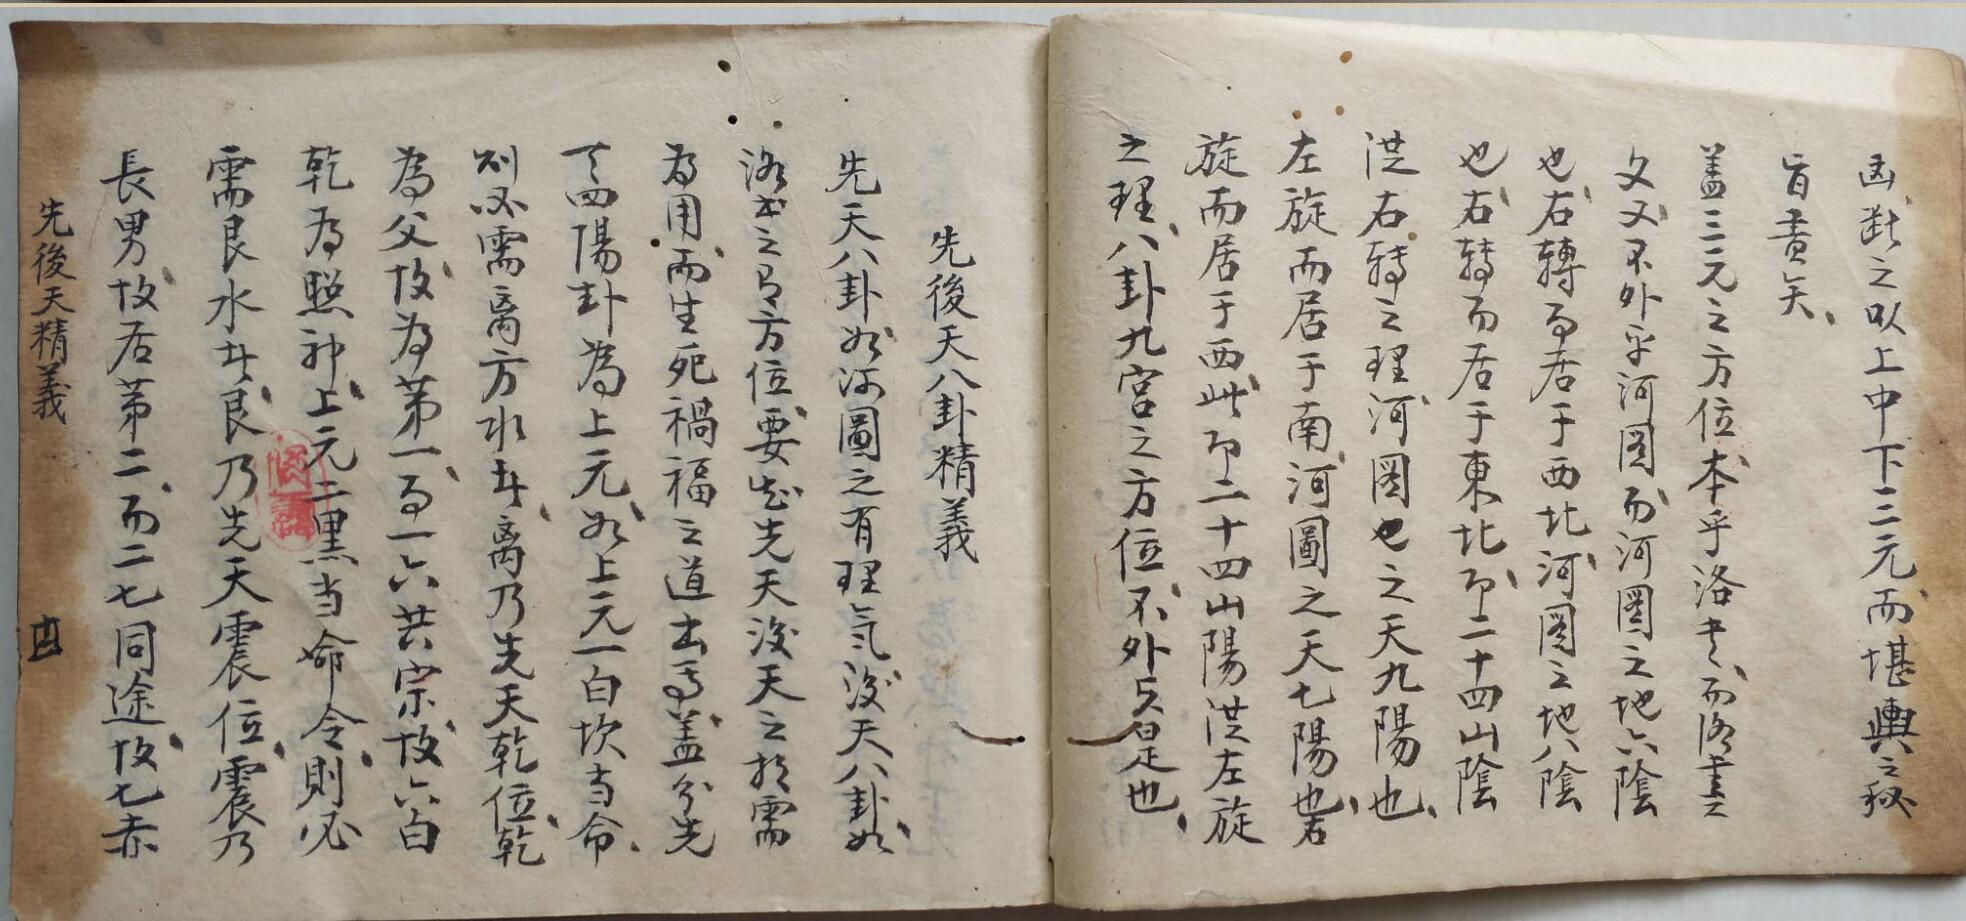 凶断之以上中下三元而堪輿之秘
旨尽矣
盖三元之方位本乎洛书而洛書之
文又不外乎河図而河図之地六陰
也右轉而居于西北河図之地八陰
也右转而居于東北即二十四山陰
洪右转之理河図也之天九陽也
左旋而居于南河圖之天七陽也右
旋而居于西此即二十四山陽洪左旋
之理八卦九宫之方位不外是也
先後天八卦精義
先天八卦如河圖之有理气後天八卦如
洛书之有方位要知先天後天之相需
为用而生死禍福之道出焉盖分先
天四陽卦為上元如上元一白坎当命
则必需离方水斗离乃先天乾位乾
為父故為第一而一六共宗故六白
乾为照神上元二黒当命令則必
需艮水斗艮乃先天震位震乃
長男故居第二而二七同途故七赤
先後天精義